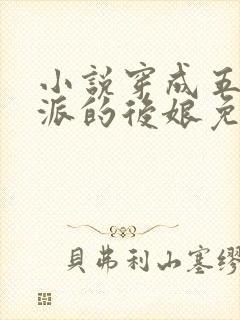 小説穿成五
派的後娘免
貝弗利山塞繆